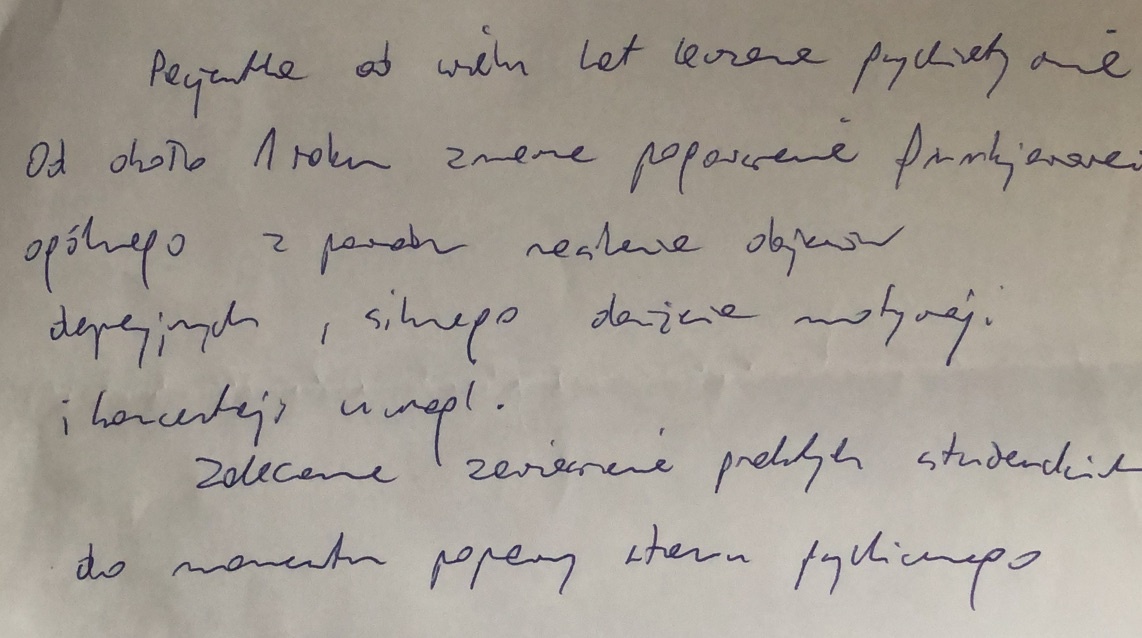 Pacjentka od wielu lat leczona psychiatrycznie
Od około 1 roku znaczne pogorszenie funkcjonowania
ogólnego z powodu nasilenia objawów
depresyjnych, silnego motywacji
i koncentracji uwagi.
Zalecane zawieszenie praktyk studenckich
do momentu poprawy stanu psychicznego